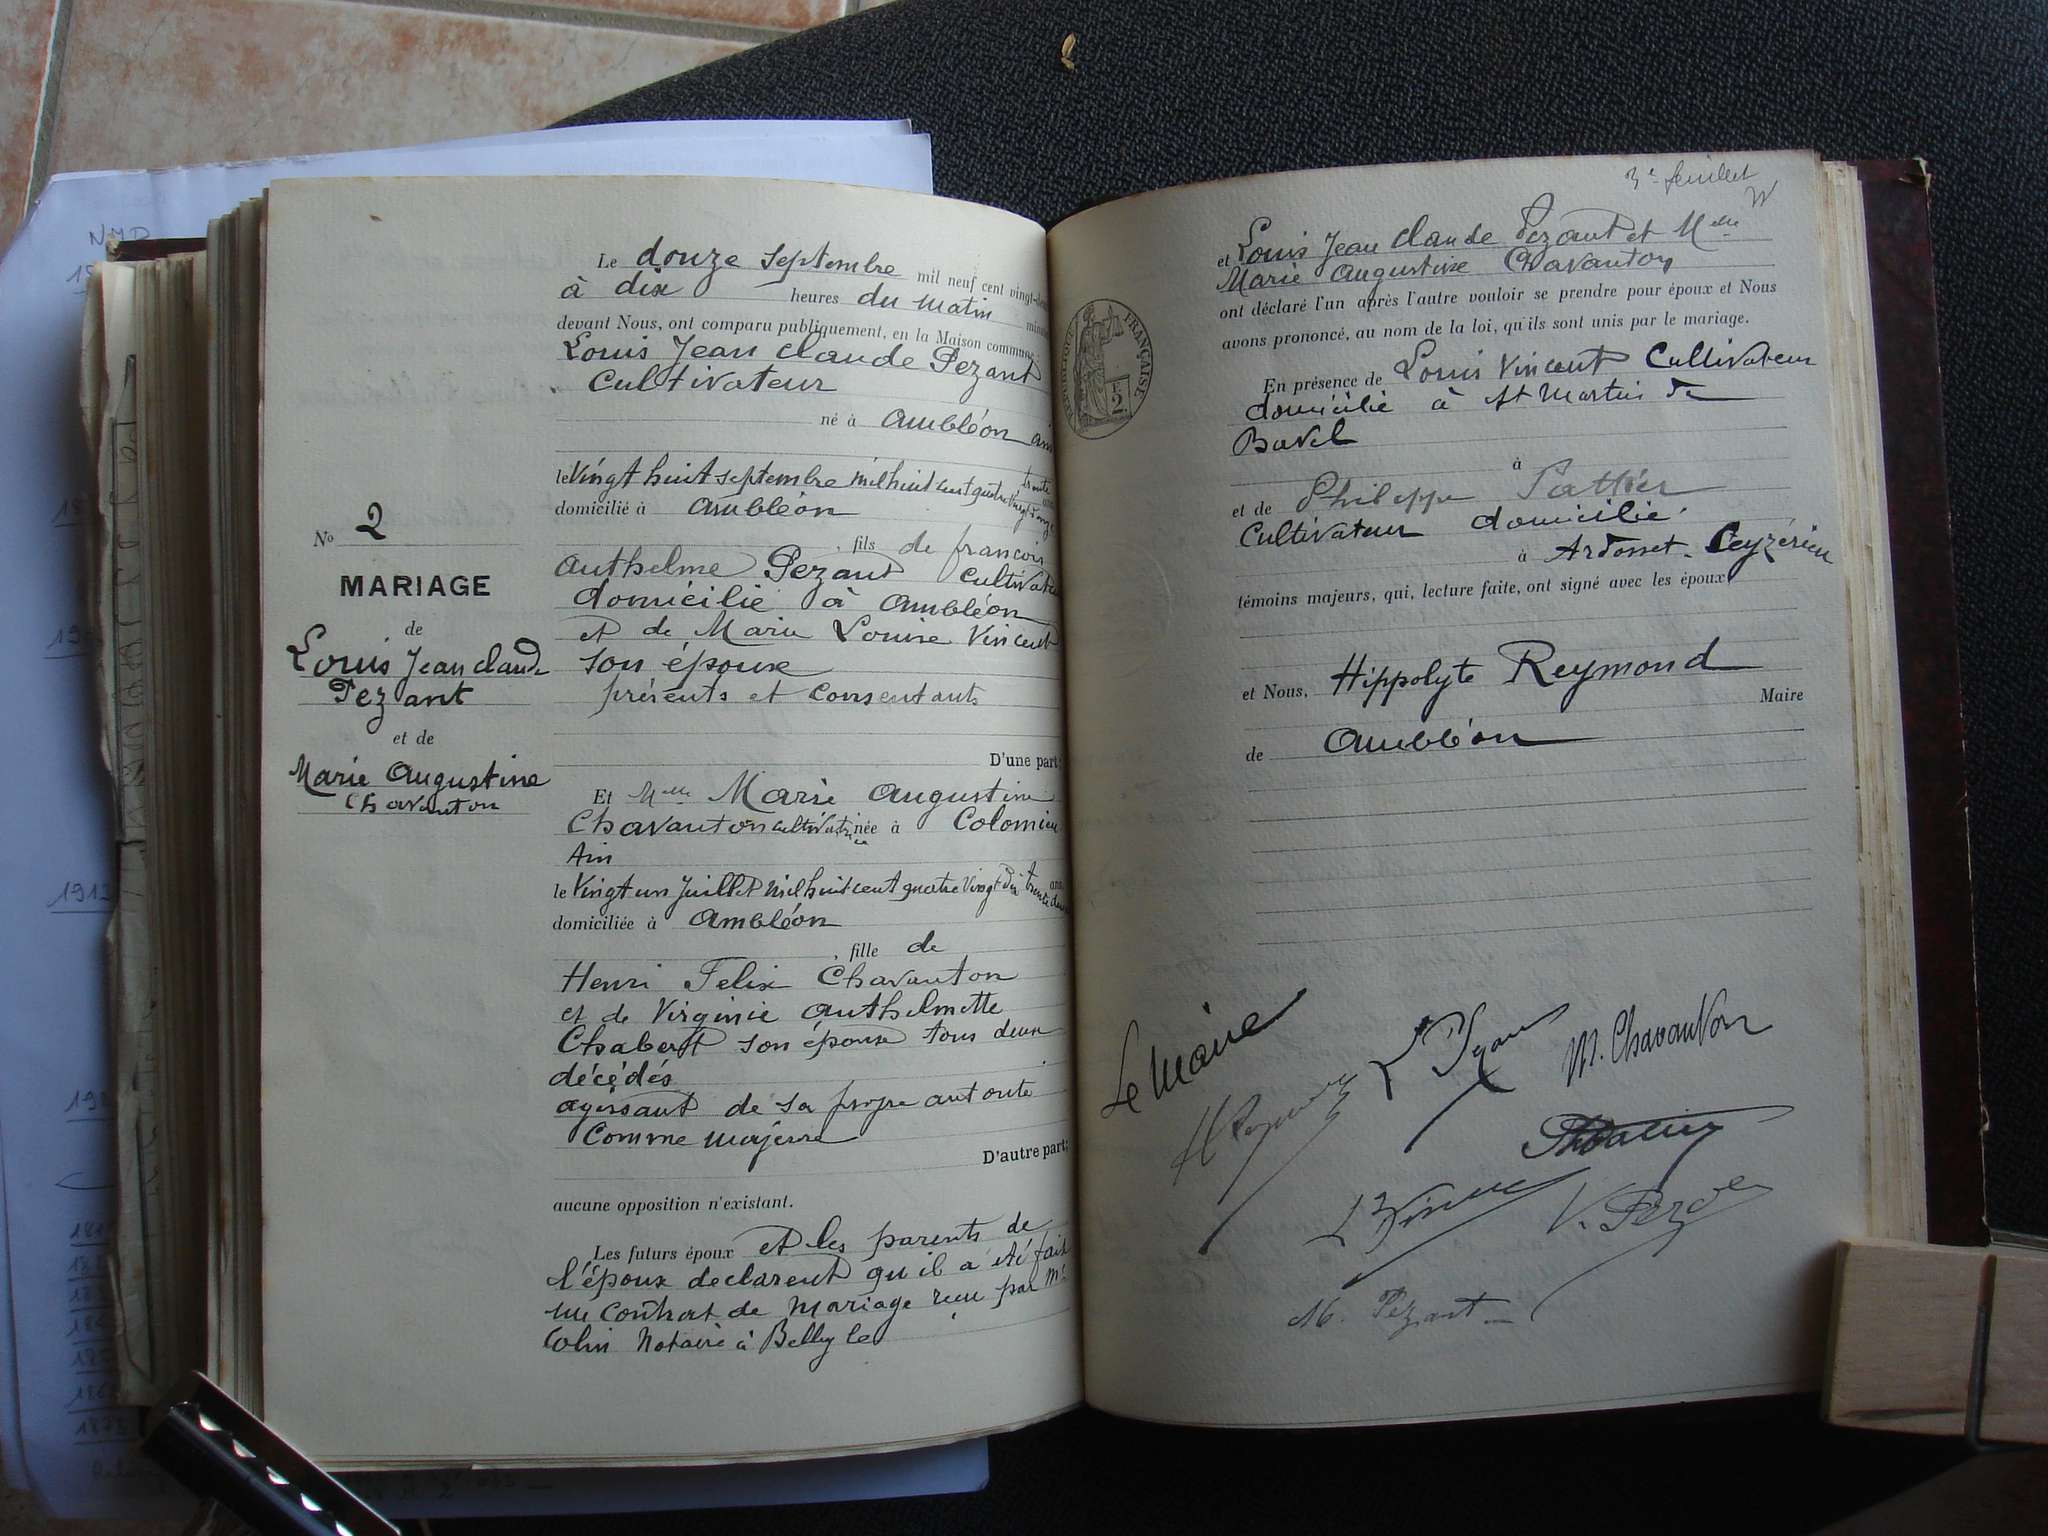 No 2
MARIAGE
de
Louis Jean Claude
Pezant
et de
Marie Augustine
Chavanton
Le douze septembre mil neuf cent vingt-deux
à dix heures du matin
devant Nous, ont comparu publiquement, en la Maison commune :
Louis Jean Claude Pezant
Cultivateur
né à Ambléon Ain
le Vingt huit septembre mil huit cent quatre Vingt onze trente ans
domicilié à Ambléon
fils de françois
Anthelme Pezant Cultivateur
domicilié à Ambléon
et de Marie Louise Vincent
son épouse
présents et consentants
D'une part;
Et Melle Marie Augustine
Chavanton cultivatrice née à Colomieu
Ain
le Vingt un Juillet mil huit cent quatre Vingt dix trente deux ans
domiciliée à Ambléon
fille de
Henri Felix Chavanton
et de Virginie Anthelmette
Chabert son épouse tous deux
décédés
agissant de sa propre autorité
Comme majeure
D'autre part;
aucune opposition n'existant.
Les futurs époux et les parents de
l'époux declarent qu'il a été fait
un contrat de mariage reçu par Me
Colin Notaire à Belley le
3e feuillet
et Louis Jean Claude Pezant et Melle
Marie Augustine Chavanton
ont déclaré l'un après l'autre vouloir se prendre pour époux et Nous
avons prononcé, au nom de la loi, qu'ils sont unis par le mariage.
RÉPUBLIQUE FRANÇAISE
2
En présence de Louis Vincent Cultivateur
domicilié à St Martin de
Bavel
à
et de Philippe
Cultivateur domicilié
à Ardosset Ceyzérieu
témoins majeurs, qui, lecture faite, ont signé avec les époux
et Nous, Hippolyte Reymond
Maire
de Ambléon
Le Maire
M. Chavanton
L Vincent
V. Pezant
M. Pezant